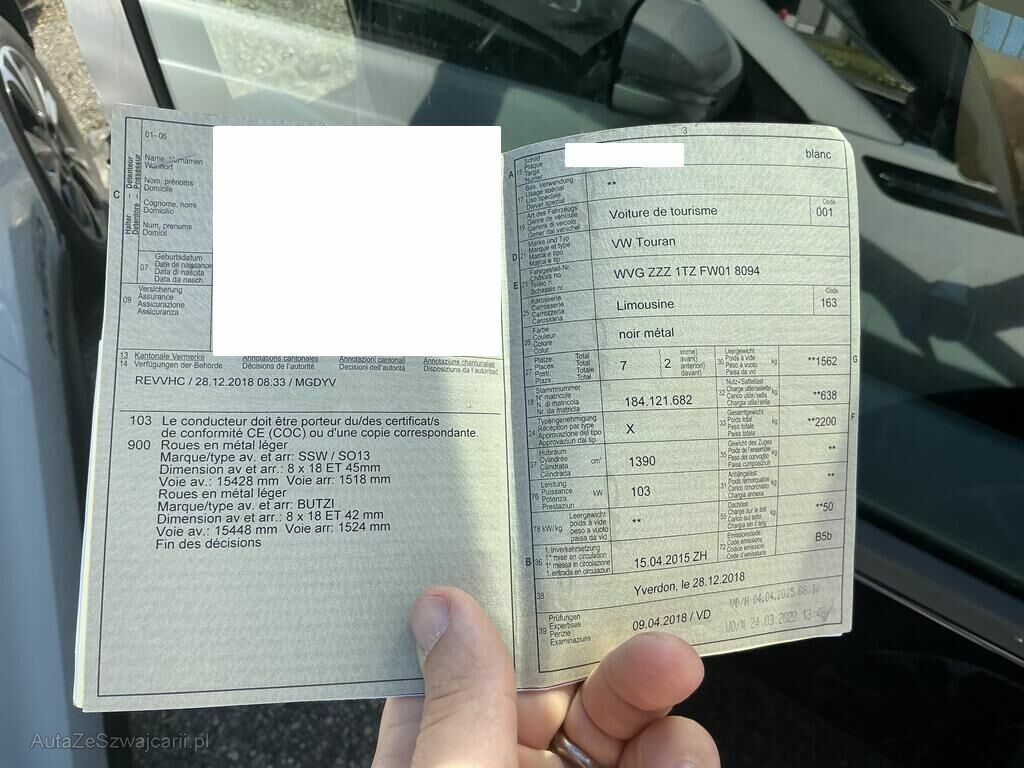 01–06
Halter – Détenteur
Detentore – Possessur
C
Name, Vornamen
Wohnort
Nom, prénoms
Domicile
Cognome, nomi
Domicilio
Num, prenums
Domicil
07
Geburtsdatum
Date de naissance
Data di nascita
Data da nasch.
09
Versicherung
Assurance
Assicurazione
Assicuranza
13
14
Kantonale Vermerke
Verfügungen der Behörde
Annotations cantonales
Décisions de l'autorité
Annotazioni cantonali
Decisioni dell'autorità
Annotaziuns chantunalas
Disposiziuns da l'autoritad
REVVHC / 28.12.2018 08:33 / MGDYV
103 Le conducteur doit être porteur du/des certificat/s
de conformité CE (COC) ou d'une copie correspondante.
900 Roues en métal léger
Marque/type av. et arr: SSW / SO13
Dimension av et arr.: 8 x 18 ET 45mm
Voie av.: 15428 mm Voie arr: 1518 mm
Roues en métal léger
Marque/type av et arr: BUTZI
Dimension av et arr.: 8 x 18 ET 42 mm
Voie av.: 15448 mm Voie arr.: 1524 mm
Fin des décisions
3
A
15
Schild
Plaque
Targa
Numer
blanc
17
Bes. Verwendung
Usage spécial
Uso speciale
Diever spezial
**
19
Art des Fahrzeugs
Genre de véhicule
Genere di veicolo
Gener dal vehichel
Voiture de tourisme
Code
001
D
21
Marke und Typ
Marque et type
Marca e tipo
Marca e tip
VW Touran
E
23
Fahrgestell-Nr.
Châssis no
Telaio n.
Schassis nr.
WVG ZZZ 1TZ FW01 8094
25
Karosserie
Carrosserie
Carrozzeria
Carossaria
Limousine
Code
163
26
Farbe
Couleur
Colore
Colur
noir métal
27
Plätze: Total
Places: Total
Posti: Totale
Plazs: Total
7
2
vorne)
avant)
anteriori)
davant)
30
Leergewicht
Poids à vide
Peso a vuoto
Paisa da vid
kg
**1562
G
18
Stammnummer
N° matricule
N. di matricola
Nr. da matricla
184.121.682
32
Nutz-/Sattellast
Carico utile/sella
Chargia utila/sella
kg
**638
24
Typengenehmigung
Réception par type
Approvazione del tipo
Approvaziun dal tip
X
33
Gesamtgewicht
Poids total
Peso totale
Paisa totala
kg
**2200
F
37
Hubraum
Cylindrée
Cilindrata
Cilindrada
cm³
1390
35
Gewicht des Zuges
Poids de l'ensemble
Peso del convoglio
Paisa cumposiziun
kg
**
76
Leistung
Puissance
Potenza
Prestaziun
kW
103
31
Anhängelast
Poids remorquable
Carico rimorchiato
Chargia annexa
kg
**
78 kW/kg
Leergewicht
poids à vide
peso a vuoto
paisa da vid
**
55
Dachlast
Charge sur le toit
Carico sul tetto
Chargia sin il tetg
kg
**50
B
36
1. Inverkehrsetzung
1re mise en circulation
1a messa in circolazione
1. entrada en circulaziun
15.04.2015 ZH
72
Emissionscode
Code émissions
Codice emissioni
Code d'emissiuns
B5b
38
Yverdon, le 28.12.2018
39
Prüfungen
Expertises
Perizie
Examinaziuns
09.04.2018 / VD
VD/H 04.04.2025 08:10
VD/N 24.03.2022 13:46
AutaZeSzwajcarii.pl